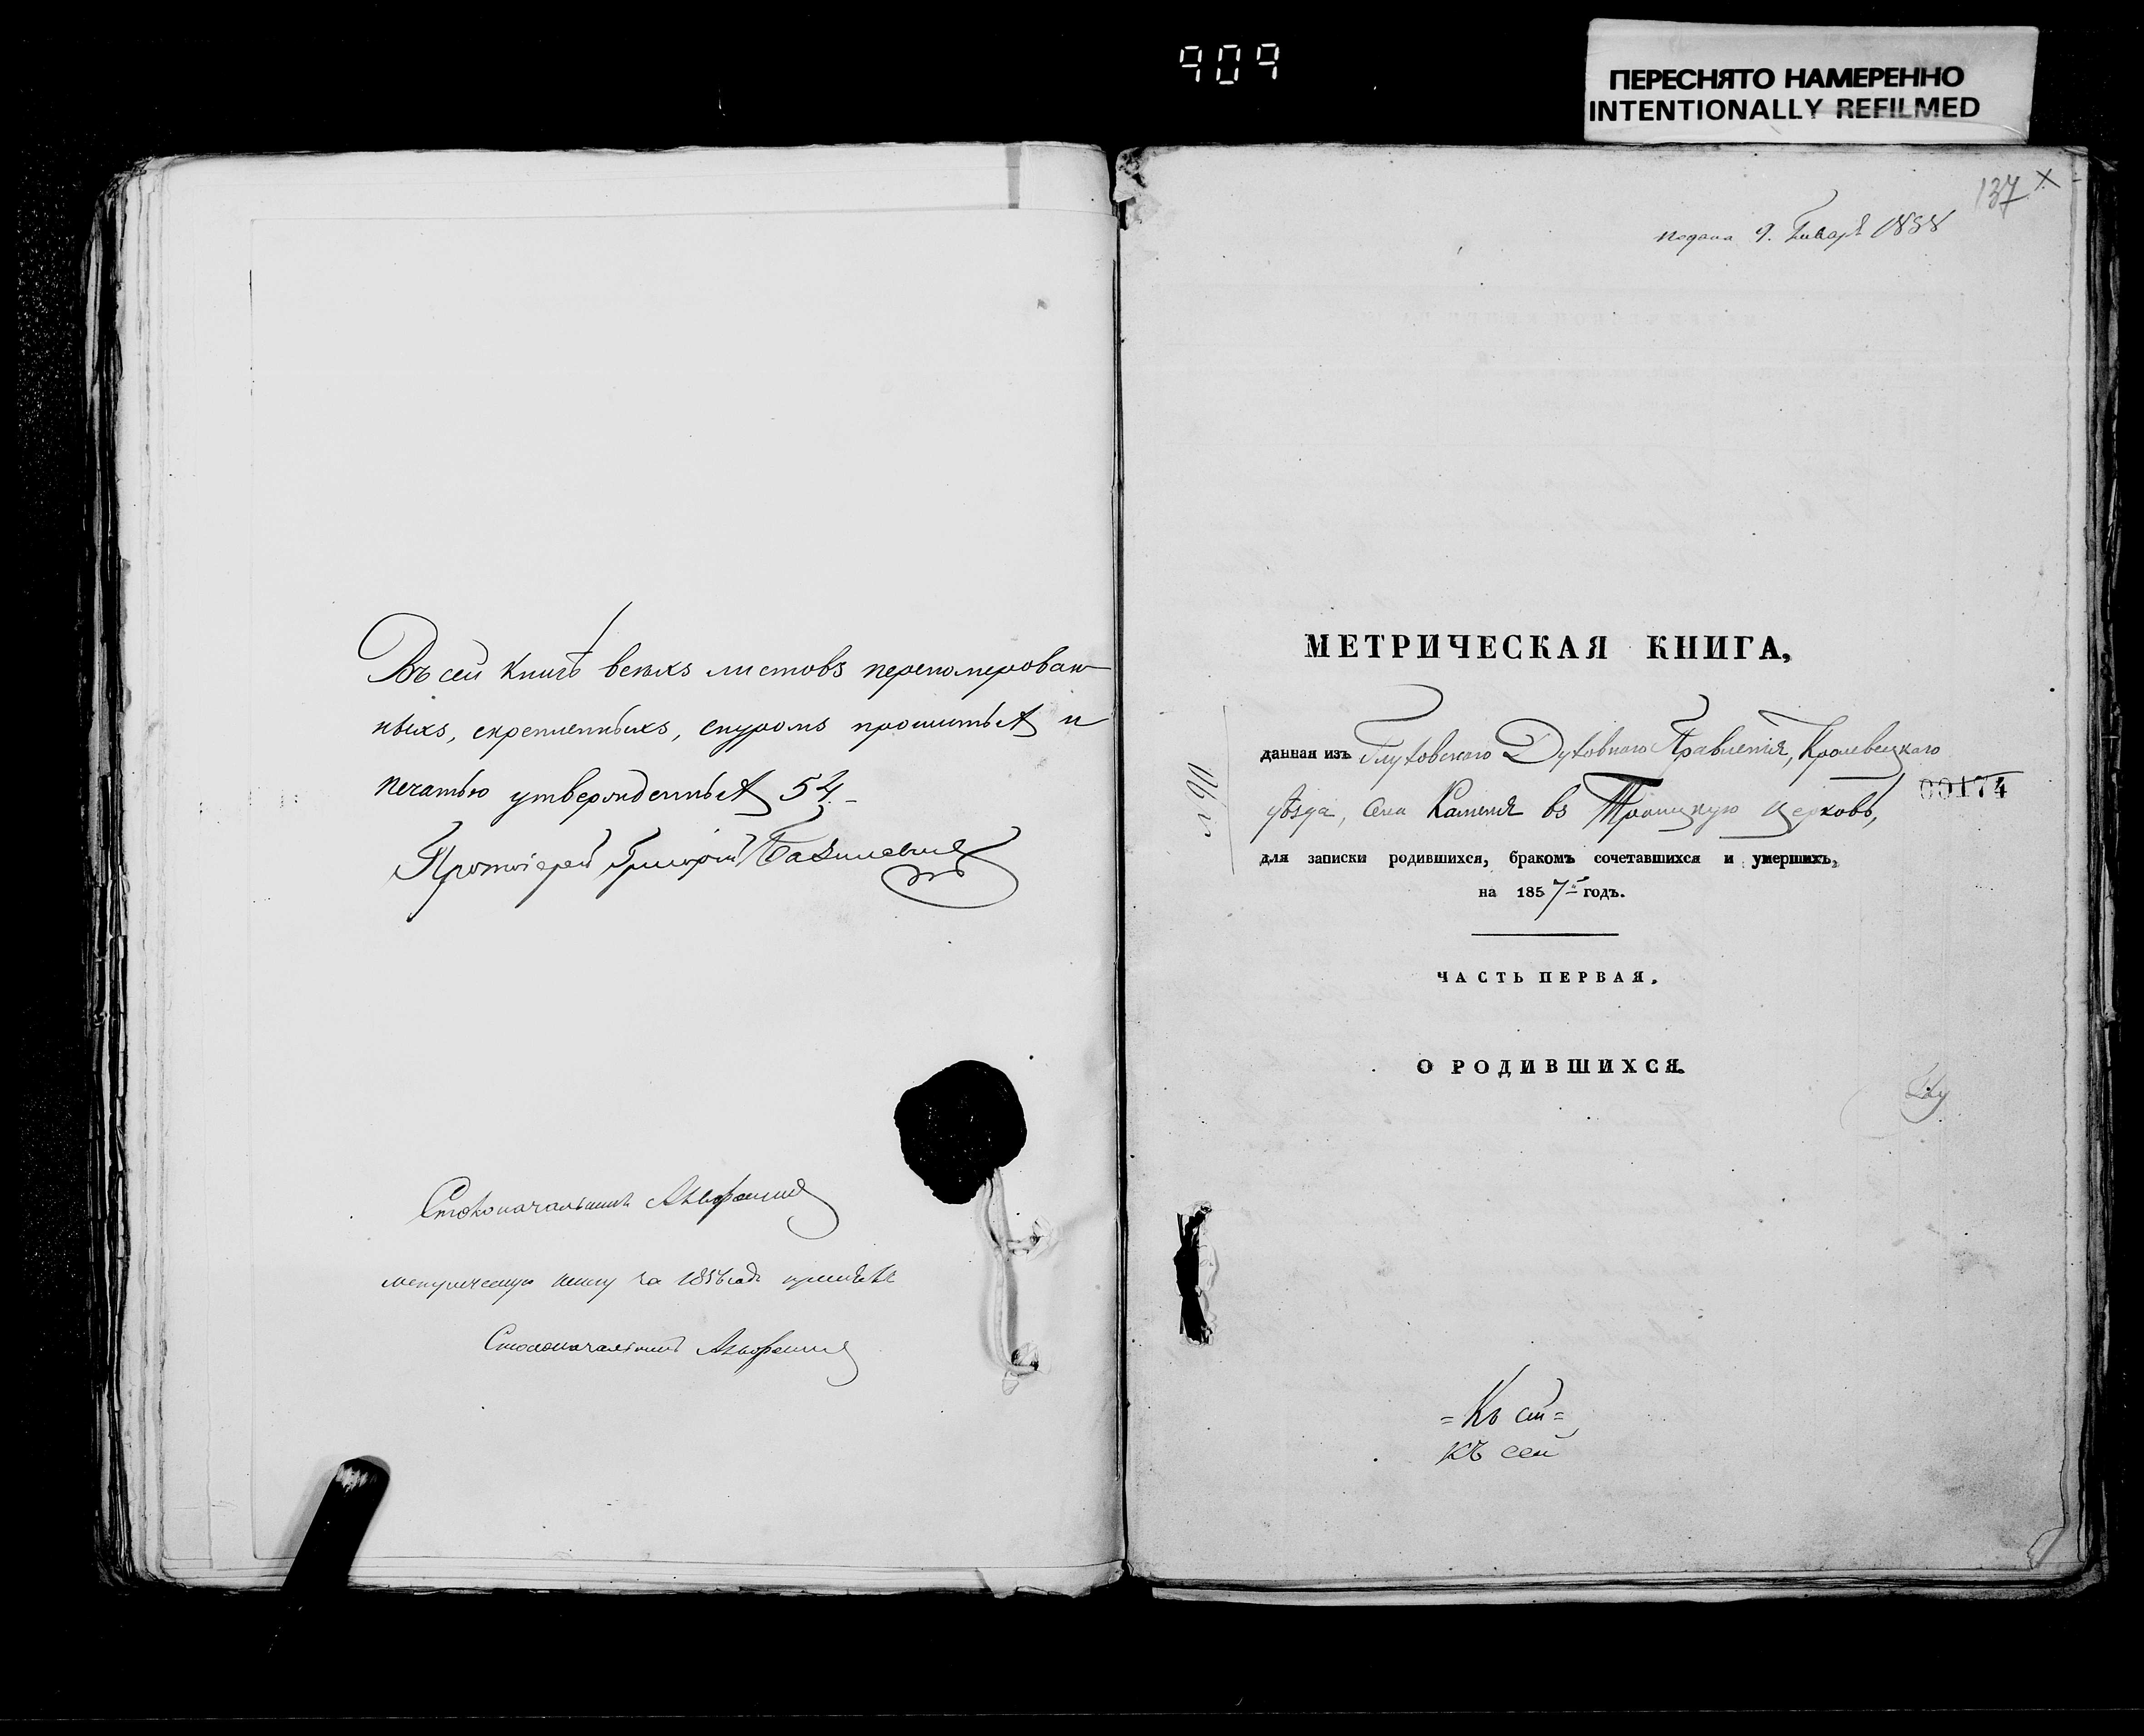 909
ПЕРЕСНЯТО НАМЕРЕННО
INTENTIONALLY REFILMED
Въ сей книгѣ всѣхъ листовъ перенумерован-
ныхъ, скрепленныхъ, шнуромъ прошитыхъ и
печатью утвержденныхъ 54.
Протоіерей Григорій Базилевичъ
Столоначальникъ
метрическую книгу за 1856 годъ
Столоначальникъ
137 х
подана 9. Января 1858
МЕТРИЧЕСКАЯ КНИГА,
данная изъ Глуховскаго Духовнаго Правленія, Кролевецкаго
уѣзда, села Каменя въ Троицкую церковь,
00174
для записки родившихся, бракомъ сочетавшихся и умершихъ,
на 1857 годъ.
ЧАСТЬ ПЕРВАЯ.
О РОДИВШИХСЯ.
=Къ сей=
къ сей